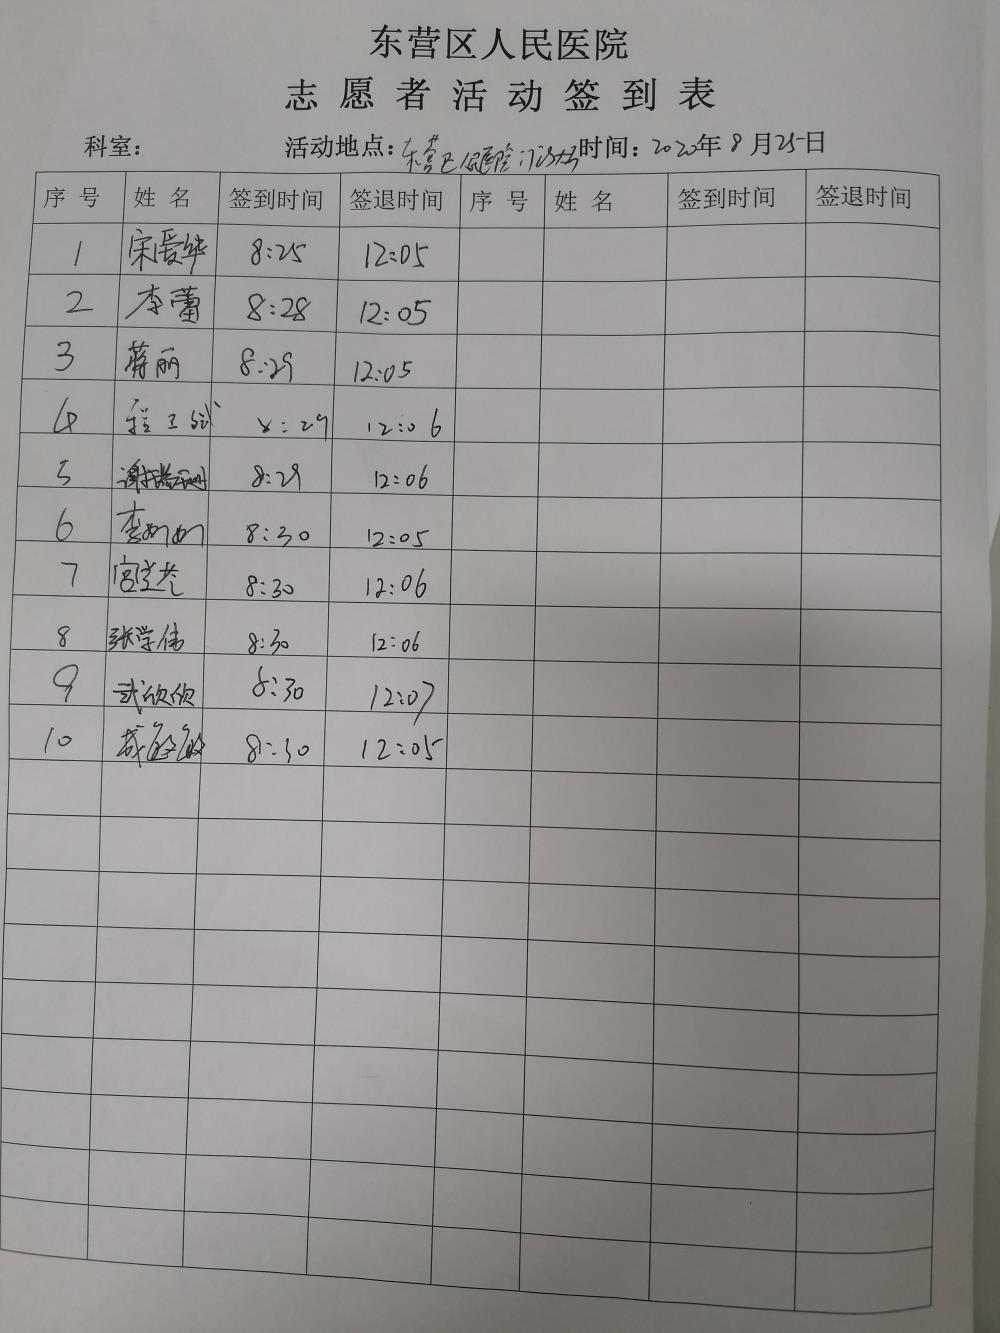 东营区人民医院
志愿者活动签到表
科室： 活动地点：东营区人民医院门诊大厅 时间：2020年8月25日
序号 姓名 签到时间 签退时间 序号 姓名 签到时间 签退时间
1 宋爱华 8:25 12:05
2 李蕾 8:28 12:05
3 蒋丽 8:29 12:05
4 8:29 12:06
5 8:29 12:06
6 李如如 8:30 12:05
7 8:30 12:06
8 张学伟 8:30 12:06
9 武欣欣 8:30 12:07
10 8:30 12:05